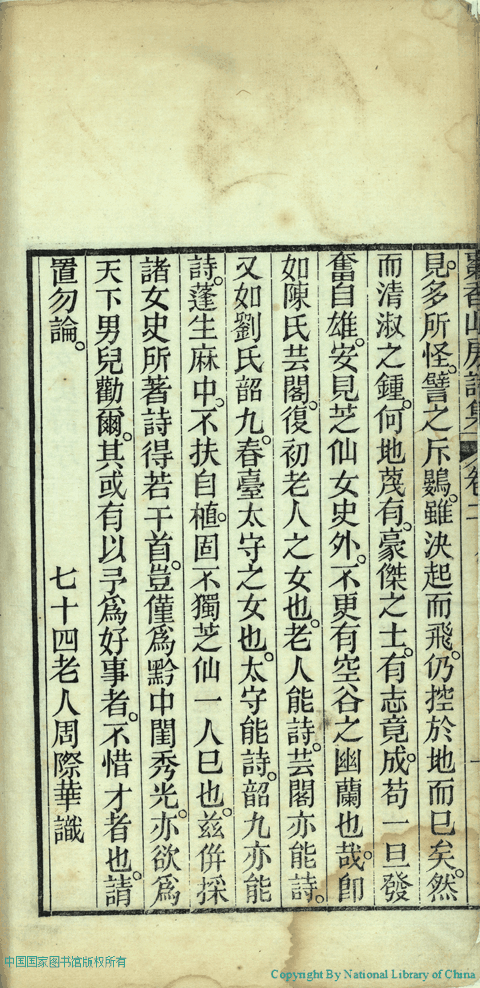 香山房詩集 卷二
見。多所怪。譬之斥鷃。雖決起而飛。仍控於地而已矣。然
而清淑之鍾。何地蔑有。豪傑之士。有志竟成。苟一旦發
奮自雄。安見芝仙女史外。不更有空谷之幽蘭也哉。卽
如陳氏芸閣。復初老人之女也。老人能詩。芸閣亦能詩。
又如劉氏韶九。春臺太守之女也。太守能詩。韶九亦能
詩。蓬生麻中。不扶自植。固不獨芝仙一人已也。茲倂採
諸女史所著詩得若干首。豈僅爲黔中閨秀光。亦欲爲
天下男兒勸爾。其或有以予爲好事者。不惜才者也。請
置勿論。
七十四老人周際華識
中国国家图书馆版权所有
Copyright By National Library of China